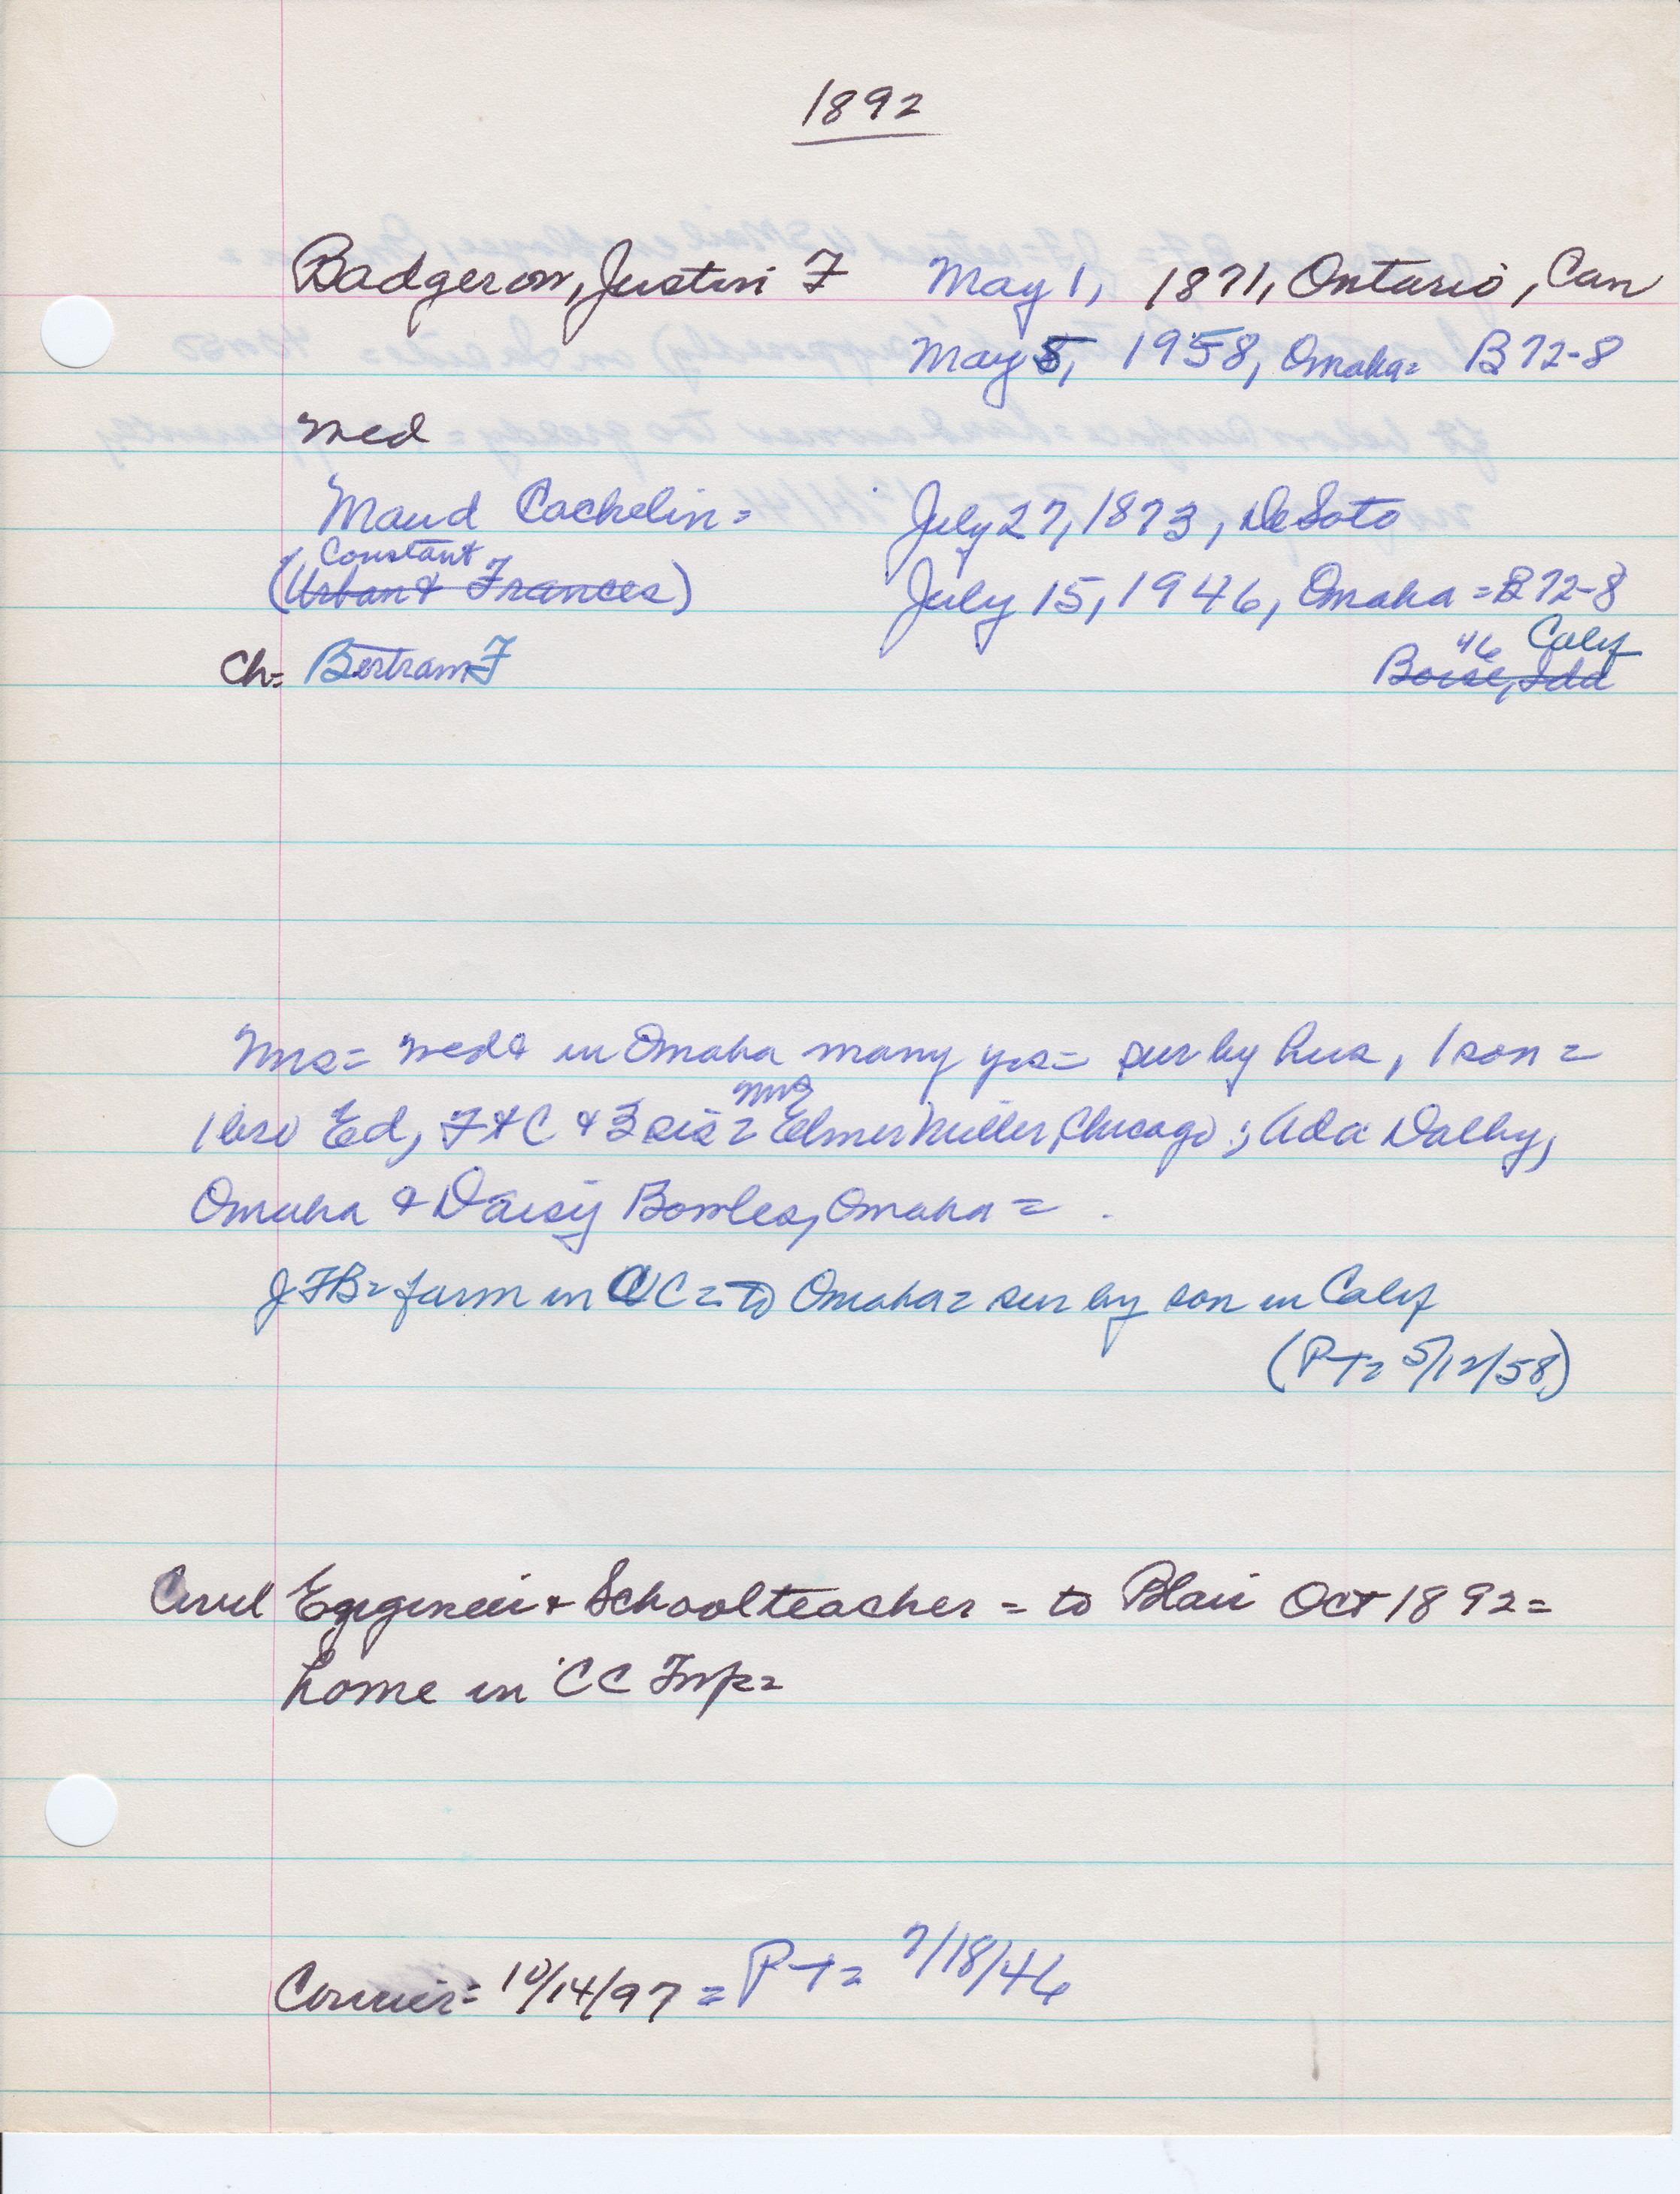 1892
Badgerow, Justin F May 1, 1871, Ontario, Can
May 5, 1958, Omaha= B72-8
Med
Maud Cachelin= July 27, 1873, DeSoto
Constant
(Urban & Frances) July 15, 1946, Omaha = B72-8
46 Calif
Ch= Bertram F Boise, Ida
Mrs= med & in Omaha many yrs= sur by hus, 1 son=
Mrs
1 bro Ed, Ft C & 3 sis= Elmer Miller, Chicago; Ada Dalby,
Omaha & Daisy Bowles, Omaha=
JFB= farm in CC= to Omaha= sur by son in Calif
(PT= 5/12/58)
Civil Engineer & Schoolteacher = to Blair Oct 1892=
home in CC Twp=
Courier= 10/14/97 = PT= 7/18/46